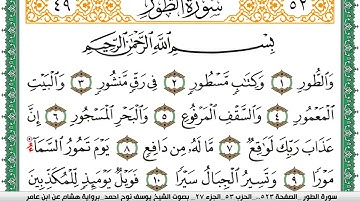 ٤٩ سُورَةُ الطُّورِ ٥٢
بِسْمِ اللَّهِ الرَّحْمَٰنِ الرَّحِيمِ
وَالطُّورِ ١ وَكِتَابٍ مَّسْطُورٍ ٢ فِي رَقٍّ مَّنشُورٍ ٣ وَالْبَيْتِ
الْمَعْمُورِ ٤ وَالسَّقْفِ الْمَرْفُوعِ ٥ وَالْبَحْرِ الْمَسْجُورِ ٦ إِنَّ
عَذَابَ رَبِّكَ لَوَاقِعٌ ٧ مَّا لَهُ مِن دَافِعٍ ٨ يَوْمَ تَمُورُ السَّمَاءُ
مَوْرًا ٩ وَتَسِيرُ الْجِبَالُ سَيْرًا ١٠ فَوَيْلٌ يَوْمَئِذٍ لِّلْمُكَذِّبِينَ
سورة الطور _الصفحة ٥٢٣_ الحزب ٥٣_ الجزء ٢٧_ بصوت الشيخ يوسف نوح احمد_ برواية هشام عن ابن عامر